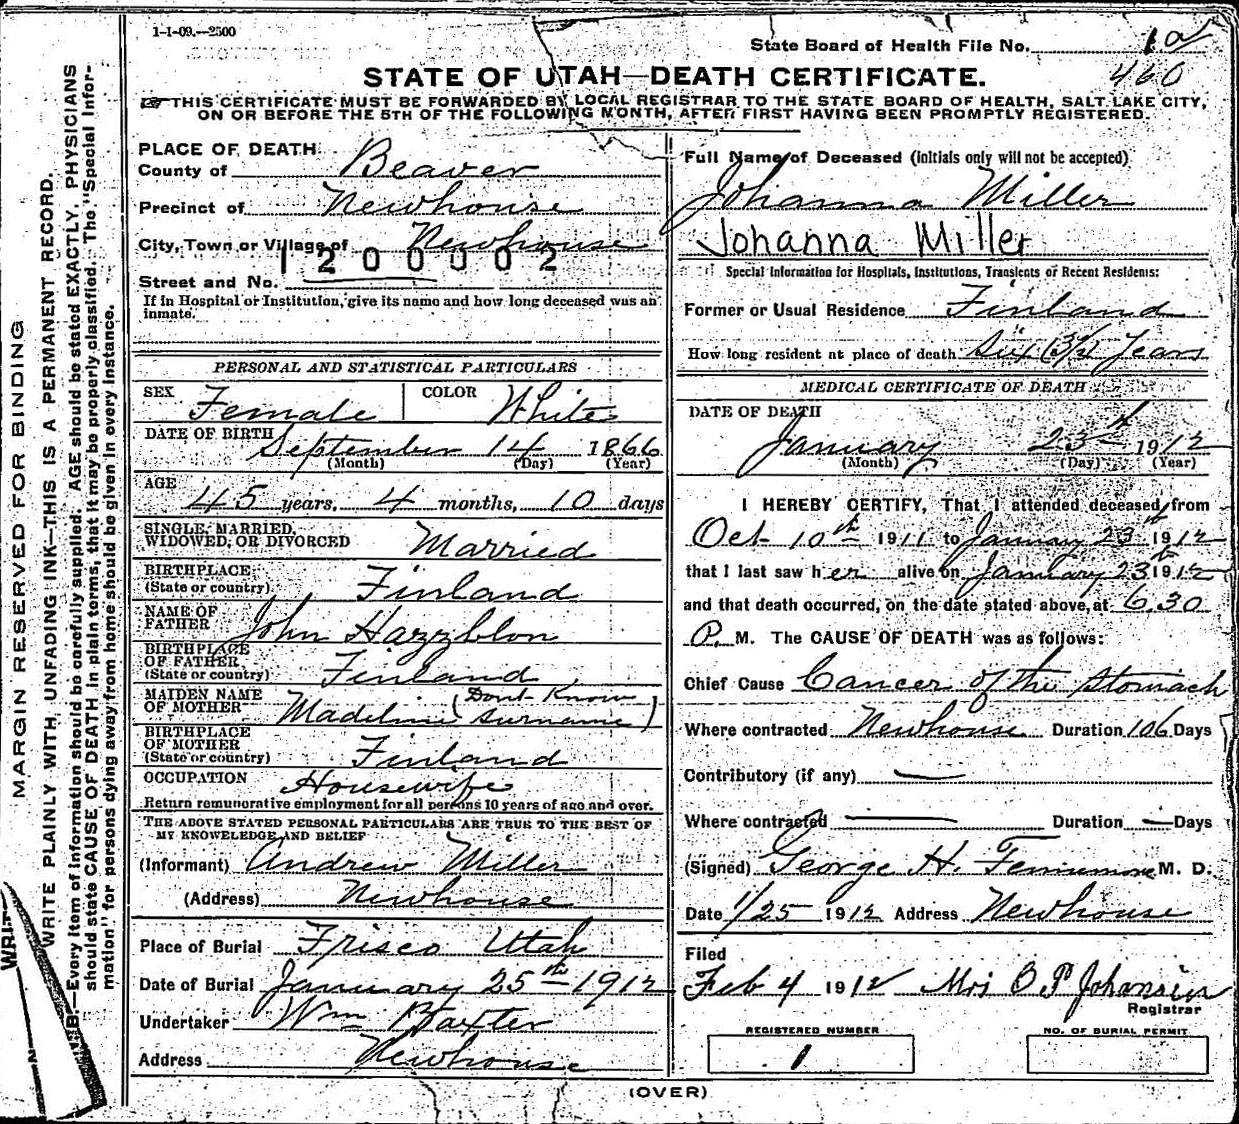 1-1-09.—2500
State Board of Health File No. 1a
460
STATE OF UTAH—DEATH CERTIFICATE.
THIS CERTIFICATE MUST BE FORWARDED BY LOCAL REGISTRAR TO THE STATE BOARD OF HEALTH, SALT LAKE CITY,
ON OR BEFORE THE 5TH OF THE FOLLOWING MONTH, AFTER FIRST HAVING BEEN PROMPTLY REGISTERED.
MARGIN RESERVED FOR BINDING
WRITE PLAINLY WITH UNFADING INK—THIS IS A PERMANENT RECORD.
N. B.—Every item of information should be carefully supplied. AGE should be stated EXACTLY. PHYSICIANS
should state CAUSE OF DEATH in plain terms, that it may be properly classified. The "Special Infor-
mation" for persons dying away from home should be given in every instance.
PLACE OF DEATH
County of Beaver
Precinct of Newhouse
City, Town or Village of Newhouse
1200002
Street and No.
If in Hospital or Institution, give its name and how long deceased was an
inmate.
PERSONAL AND STATISTICAL PARTICULARS
SEX Female COLOR White
DATE OF BIRTH September 14 1866
(Month) (Day) (Year)
AGE
45 years, 4 months, 10 days
SINGLE, MARRIED,
WIDOWED, OR DIVORCED Married
BIRTHPLACE
(State or country) Finland
NAME OF
FATHER John Hazzblon
BIRTHPLACE
OF FATHER
(State or country) Finland
MAIDEN NAME
OF MOTHER Madeline (Dont Know
Surname)
BIRTHPLACE
OF MOTHER
(State or country) Finland
OCCUPATION Housewife
Return remunerative employment for all persons 10 years of age and over.
THE ABOVE STATED PERSONAL PARTICULARS ARE TRUE TO THE BEST OF
MY KNOWLEDGE AND BELIEF
(Informant) Andrew Miller
(Address) Newhouse
Place of Burial Frisco Utah
Date of Burial January 25th 1912
Undertaker Wm Baxter
Address Newhouse
Full Name of Deceased (initials only will not be accepted)
Johanna Miller
Johanna Miller
Special Information for Hospitals, Institutions, Transients or Recent Residents:
Former or Usual Residence Finland
How long resident at place of death Six (3½) Years
MEDICAL CERTIFICATE OF DEATH
DATE OF DEATH
January 23d 1912
(Month) (Day) (Year)
I HEREBY CERTIFY, That I attended deceased from
Oct 10th 1911 to January 23 1912
that I last saw her alive on January 23 1912
and that death occurred, on the date stated above, at 6.30
P. M. The CAUSE OF DEATH was as follows:
Chief Cause Cancer of the Stomach
Where contracted Newhouse Duration 106 Days
Contributory (if any) —
Where contracted — Duration — Days
(Signed) George H. M. D.
Date 1/25 1912 Address Newhouse
Filed
Feb 4 1912 Mrs O P Johansen
Registrar
REGISTERED NUMBER
1
NO. OF BURIAL PERMIT
(OVER)